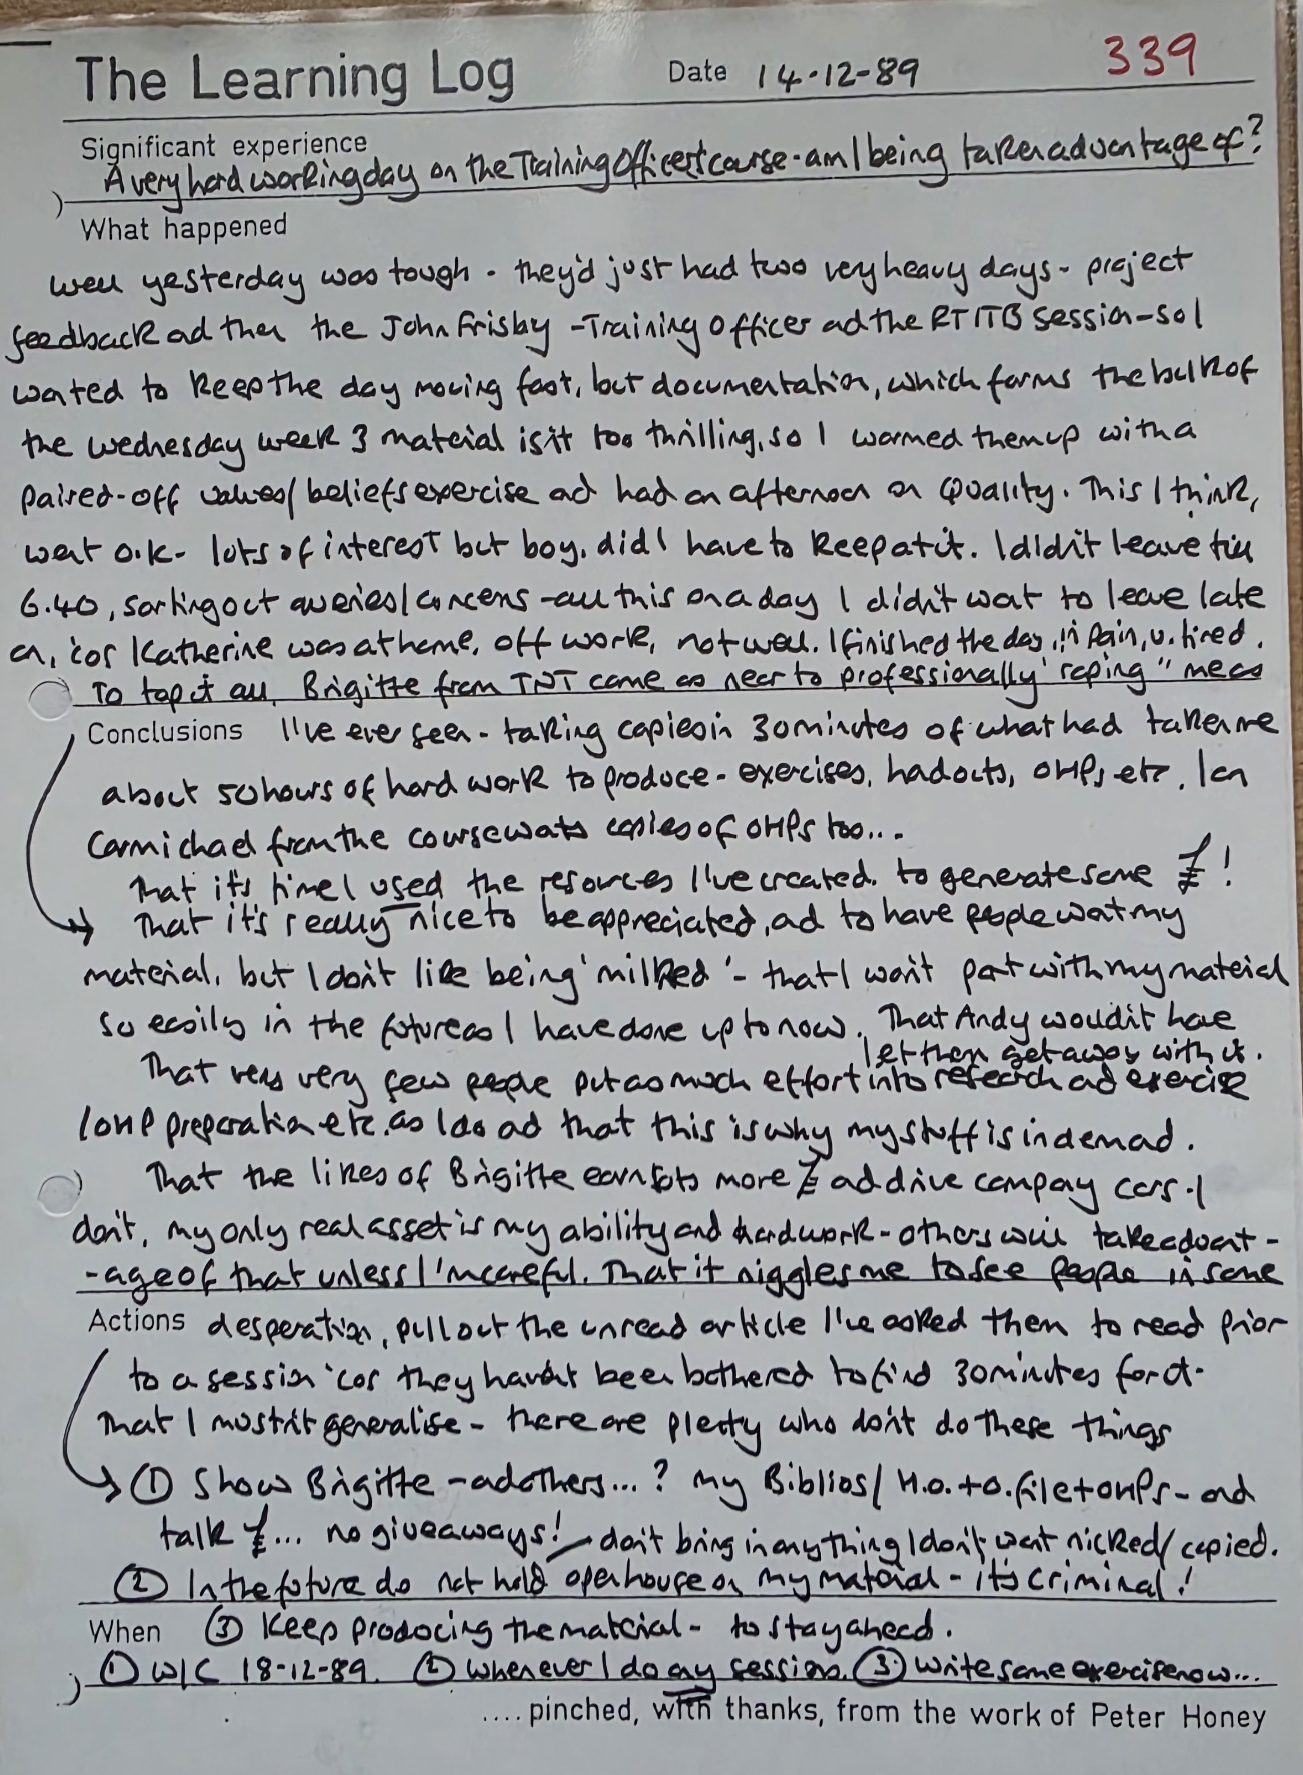 The Learning Log Date 14-12-89 339
Significant experience
A very hard working day on the Training Officers course - am I being taken advantage of?
What happened
Well yesterday was tough - they'd just had two very heavy days - project
feedback and then the John Frisby - Training Officer and the RTITB session - so I
wanted to keep the day moving fast, but documentation, which forms the bulk of
the Wednesday week 3 material isn't too thrilling, so I warmed them up with a
paired-off values/beliefs exercise and had an afternoon on Quality. This I think,
went o.k - lots of interest but boy, did I have to keep at it. I didn't leave till
6.40, sorting out queries/concerns - all this on a day I didn't want to leave late
on, 'cos Katherine was at home, off work, not well. I finished the day in pain, v. tired.
To top it all, Brigitte from TNT came as near to professionally 'raping" me as
Conclusions I've ever seen - taking copies in 30 minutes of what had taken me
about 50 hours of hard work to produce - exercises, handouts, OHPs, etc. Ian
Carmichael from the course wants copies of OHPs too...
That it's time I used the resources I've created. to generate some £!
That it's really nice to be appreciated, and to have people want my
material, but I don't like being 'milked' - that I won't part with my material
so easily in the future as I have done up to now. That Andy wouldn't have
let them get away with it.
That very very few people put as much effort into research and exercise
/OHP preparation etc. as I do and that this is why my stuff is in demand.
That the likes of Brigitte earn lots more £ and drive company cars. I
don't, my only real asset is my ability and hard work - others will take advant-
-age of that unless I'm careful. That it niggles me to see people in some
Actions desperation, pull out the unread article I've asked them to read prior
to a session 'cos they haven't been bothered to find 30 minutes for it.
That I mustn't generalise - there are plenty who don't do these things
① Show Brigitte - and others...? my Biblios/ H.o.+o. file + OHPs - and
talk £... no giveaways! - don't bring in anything I don't want nicked/copied.
② In the future do not hold open house on my material - it's criminal!
When ③ Keep producing the material - to stay ahead.
① W/C 18-12-89. ② Whenever I do any session. ③ Write some exercise now...
....pinched, with thanks, from the work of Peter Honey